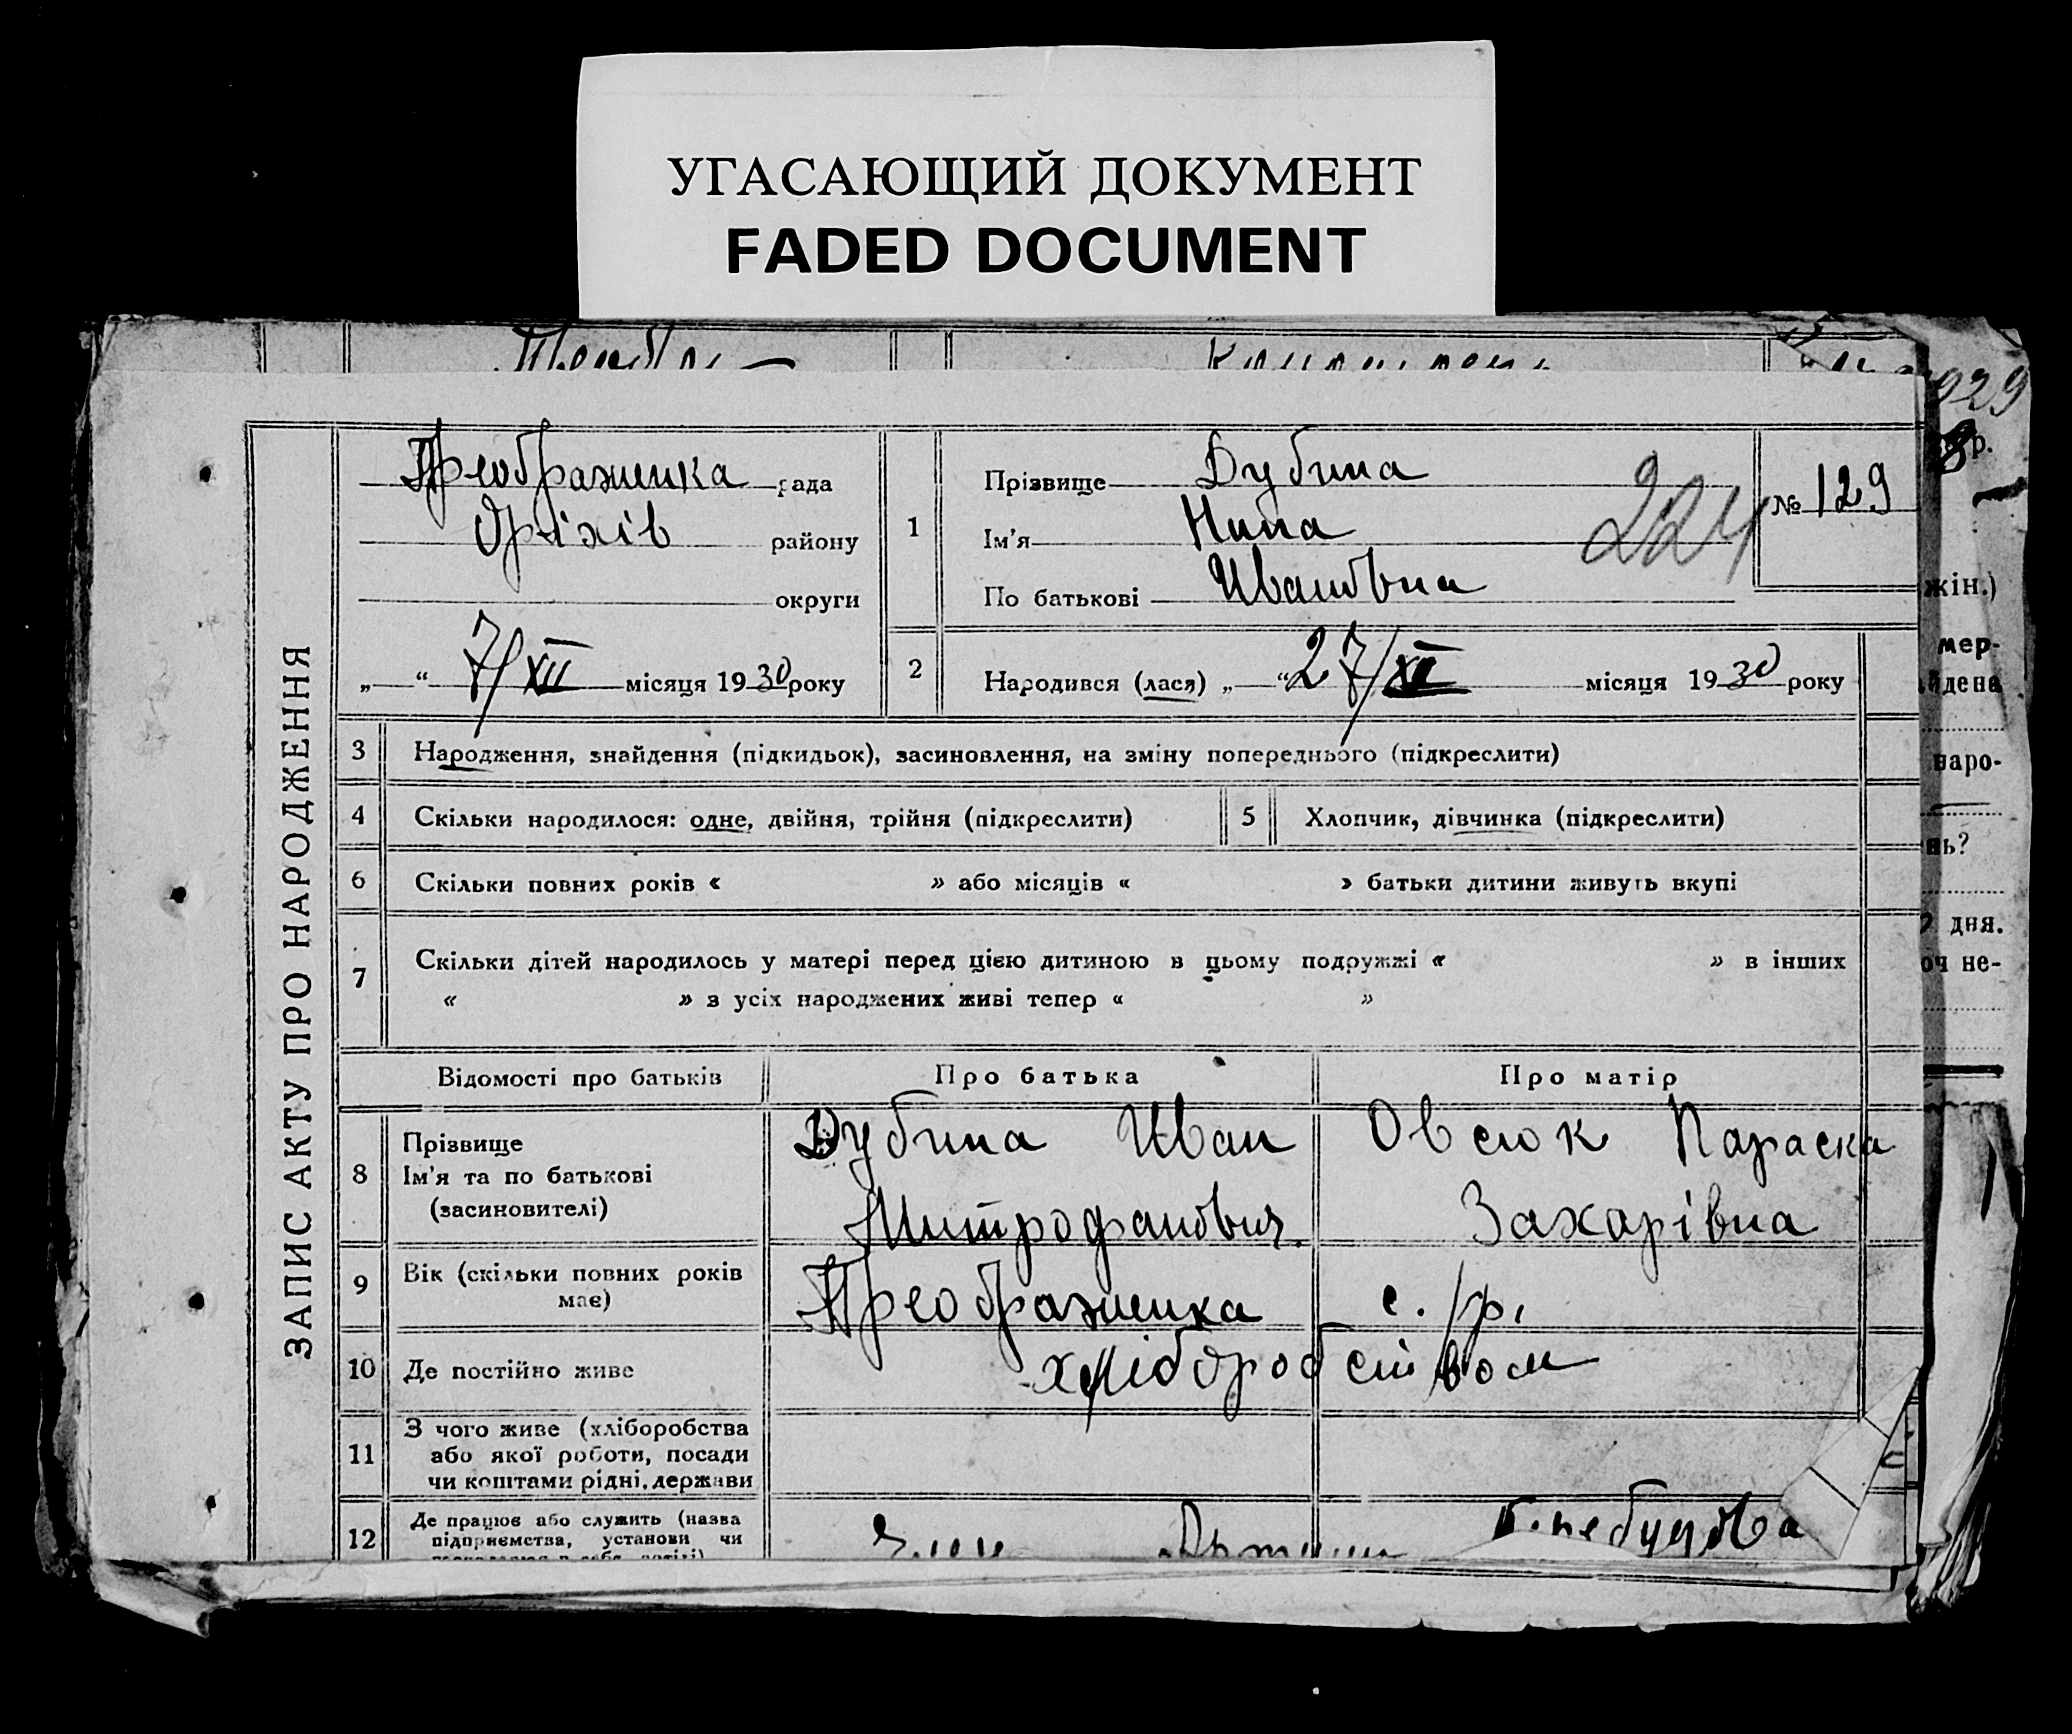 УГАСАЮЩИЙ ДОКУМЕНТ
FADED DOCUMENT
929
р.
ЗАПИС АКТУ ПРО НАРОДЖЕННЯ
Преображенка рада
Оріхів району
округи
„ “ 7/XII місяця 1930 року
1
Прізвище Дубина
Ім'я Нина
По батькові Ивановна
224
№ 129
2 Народився (лася) „ “ 27/XI місяця 1930 року
3 Народження, знайдення (підкидьок), засиновлення, на зміну попереднього (підкреслити)
4 Скільки народилося: одне, двійня, трійня (підкреслити) 5 Хлопчик, дівчинка (підкреслити)
6 Скільки повних років « » або місяців « » батьки дитини живуть вкупі
7 Скільки дітей народилось у матері перед цією дитиною в цьому подружжі « » в інших
« » з усіх народжених живі тепер « »
Відомості про батьків Про батька Про матір
8 Прізвище
Ім'я та по батькові
(засиновителі)
Дубина Иван
Митрофанович
Овсюк Параска
Захарівна
9 Вік (скільки повних років
має)
Преображенка с./р.
10 Де постійно живе
хліборобством
11 З чого живе (хліборобства
або якої роботи, посади
чи коштами рідні, держави
12 Де працює або служить (назва
підприємства, установи чи
жін.)
мер-
йдена
наро-
нь?
дня.
оч не-